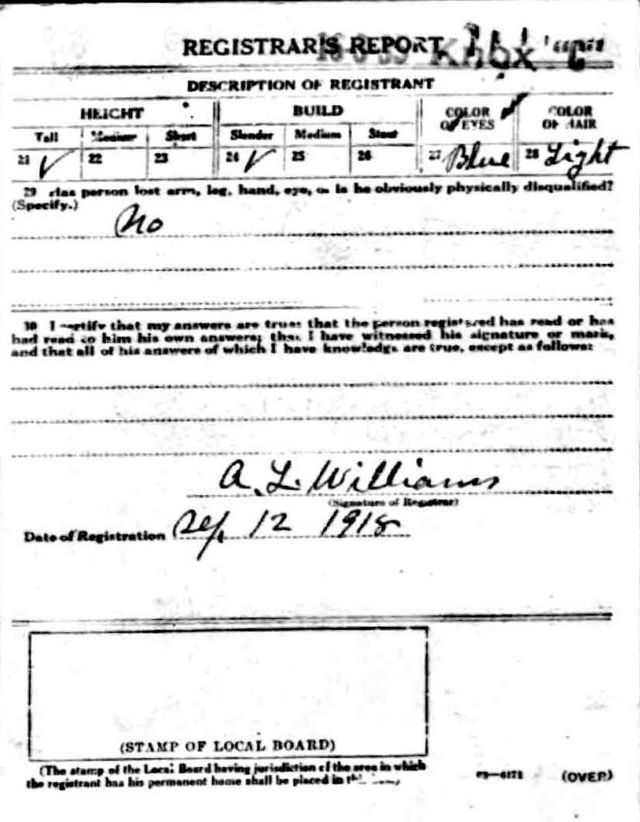 REGISTRAR'S REPORT Knox
DESCRIPTION OF REGISTRANT
HEIGHT BUILD COLOR OF EYES COLOR OF HAIR
Tall Medium Short Slender Medium Stout
21 ✓ 22 23 24 ✓ 25 26 27 Blue 28 Light
29 Has person lost arm, leg, hand, eye, or is he obviously physically disqualified?
(Specify.)
No
30 I certify that my answers are true; that the person registered has read or has
had read to him his own answers; that I have witnessed his signature or mark,
and that all of his answers of which I have knowledge are true, except as follows:
A. L. Williams
(Signature of Registrar)
Date of Registration Sep. 12 1918
(STAMP OF LOCAL BOARD)
(The stamp of the Local Board having jurisdiction of the area in which
the registrant has his permanent home shall be placed in
03—6171 (OVER)